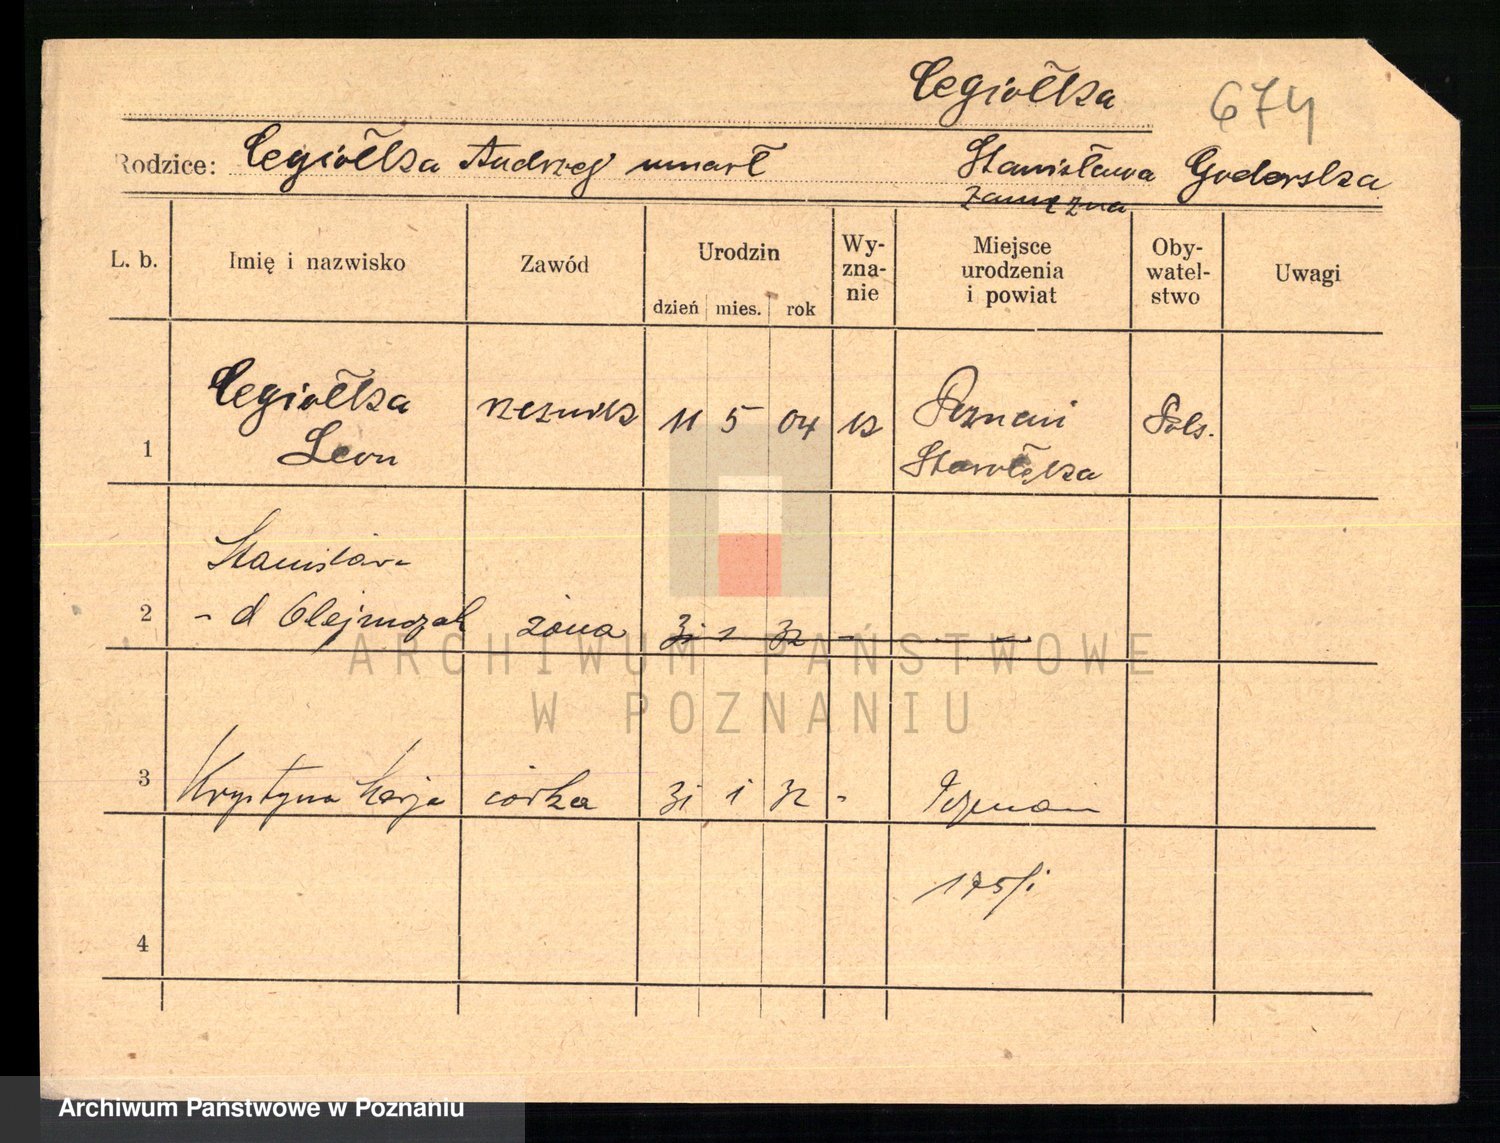 Cegiołka
674
Rodzice: Cegiołka Andrzej umarł Stanisława Goderska
zamężna
L. b. Imię i nazwisko Zawód Urodzin dzień mies. rok Wy-zna-nie Miejsce urodzenia i powiat Oby-watel-stwo Uwagi
1 Cegiołka Leon rzeźnik 11 5 04 k Poznań Starołęka Pols.
2 Stanisława
- d Olejniczak żona 31 1 32 - -
3 Krystyna Marja córka 31 1 32 - Poznań
175/1
4
ARCHIWUM PAŃSTWOWE
W POZNANIU
Archiwum Państwowe w Poznaniu